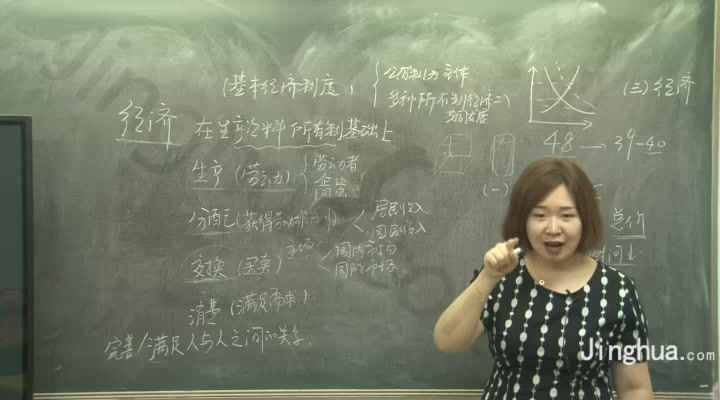 (基本经济制度：{公有制为主体
多种所有制经济
共同发展
(三)经济
经济 在生产资料所有制基础上
48→39-40
生产(劳动){劳动者
(一)
分配(获得劳动成果)<居民收入
国民收入
总价
交换(买卖)市场<国内市场
国际市场
消费(满足需求)
完善/满足人与人之间的关系.
Jinghua.com